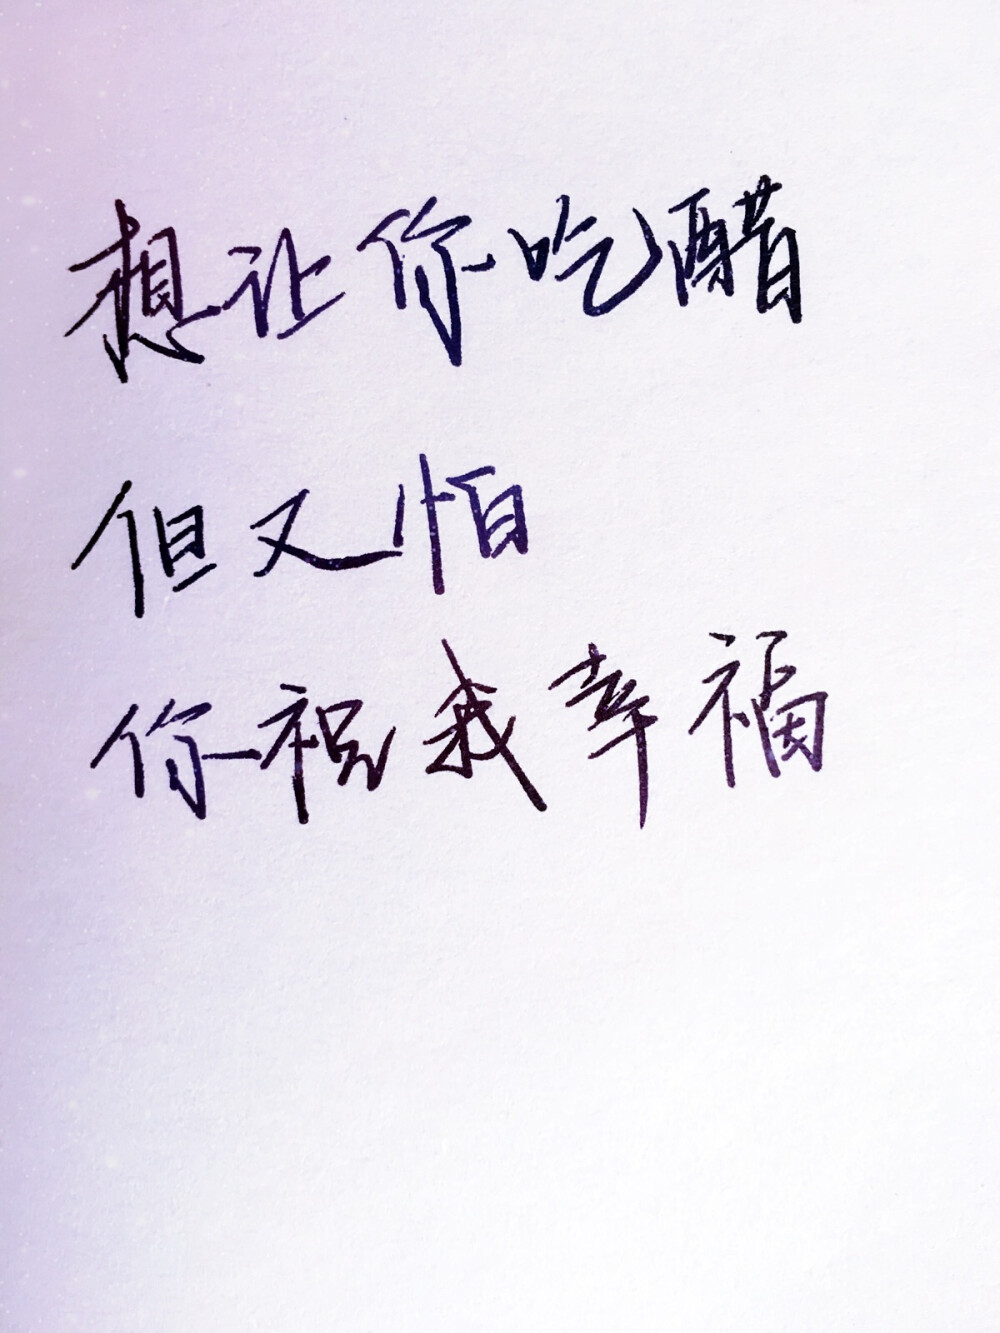 想让你吃醋
但又怕
你祝我幸福